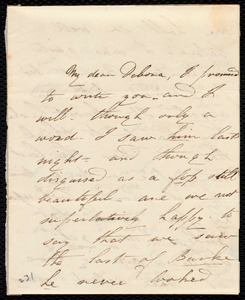 My dear Debora, I promised
to write you - and I
will - though only a
word - I saw him last
night - and though
disguised as a fop still
beautiful - are we not
superlatively happy - to
say that we saw
the last of Burke
he never looked